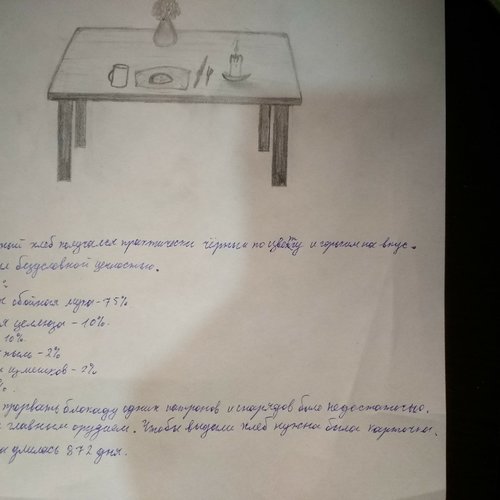 ный хлеб получался практически чёрным по цвету и горьким на вкус.
безусловной ценностью.
обойная мука - 75%
я целлюлоза - 10%.
10%.
пыль - 2%
- 2%
%.
прорвать блокаду одних патронов и снарядов было недостаточно.
главным орудием. Чтобы выдали хлеб нужна была карточка.
длилась 872 дня.